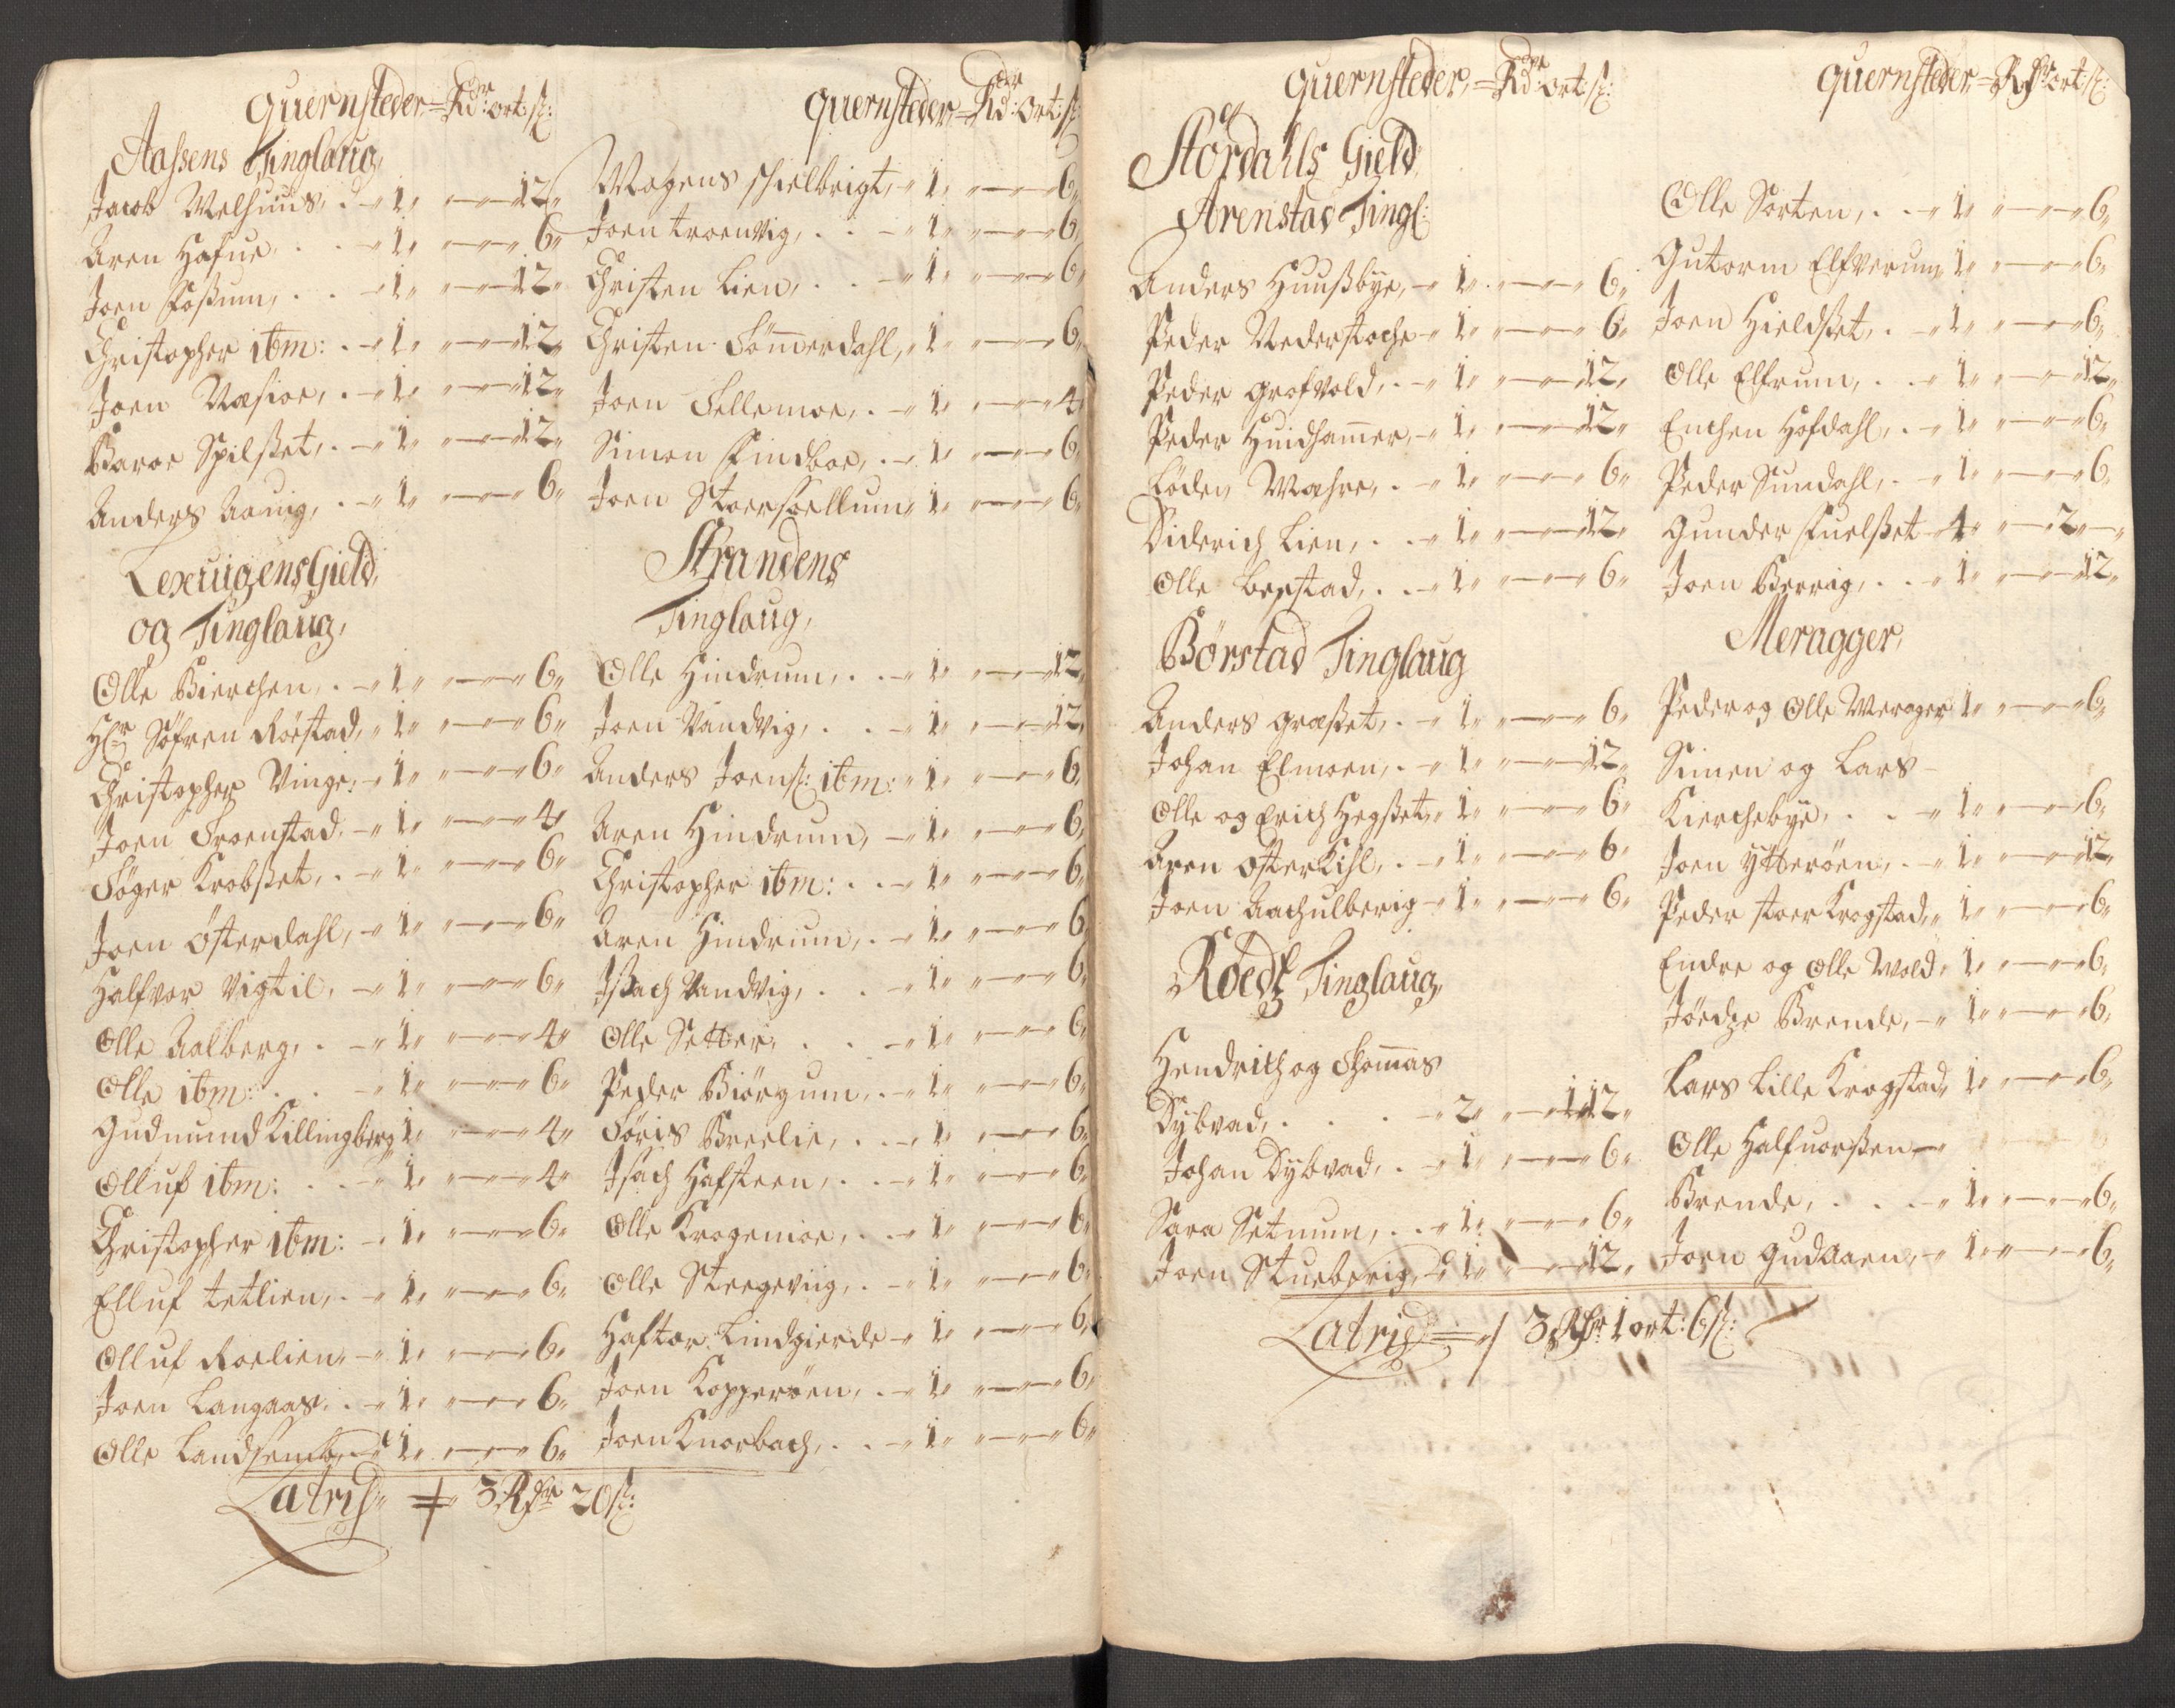 Quernsteder, Rdr: ort: s:
Aassens Tinglaug,
Jacob Welhuus, 1 12
Aren Hafue, 1 6
Joen Fossum, 1 12
Christopher ibm: 1 12
Joen Næsioe, 1 12
Baroe Spilsset, 1 12
Anders Aauig, 1 6
Lexuigens Gield,
og Tinglaug,
Olle Bierchen, 1 6
Hr Söfren Röestad, 1 6
Christopher Vinge, 1 6
Joen Troenstad, 1 4
Töger Krobsset, 1 6
Joen Österdahl, 1 6
Halfvor Vigtil, 1 6
Olle Aalberg, 1 4
Olle ibm: 1 6
Gudmund Killingberg 1 4
Olluf ibm: 1 4
Christopher ibm: 1 6
Elluf tetlien, 1 6
Olluf Roelien, 1 6
Joen Langaas, 1 6
Olle Landsemb, 1 6
Quernsteder, Rdr: Ort: s:
Mogens Schielbrigt, 1 6
Joen troenvig, 1 6
Christen Lien, 1 6
Christen Sönnerdahl, 1 6
Joen Sellemoe, 1 4
Simon Findboe, 1 6
Joen Stoersoellum 1 6
Strandens
Tinglaug,
Olle Hindrum, 1 12
Joen Vandvig, 1 12
Anders Joens: ibm: 1 6
Aren Hindrum, 1 6
Christopher ibm: 1 6
Aren Hindrum, 1 6
Issach Vandvig, 1 6
Olle Setter, 1 6
Peder Biörgum, 1 6
Töris Breelie, 1 6
Isach Hafsteen, 1 6
Olle Krogemoe, 1 6
Olle Steegeviig, 1 6
Haftor Lindgierde 1 6
Joen Kopperöen, 1 6
Joen Knorbach, 1 6
Latris 3 Rdr 20 s:
Quernsteder, Rdr: ort: s:
Stördahls Gield,
Arenstad Tingl:
Anders Huussbye, 1 6
Peder Nederstoche 1 6
Peder Grofvold, 1 12
Peder Huidhammer, 1 12
Löden Mæhre, 1 6
Diderich Lien, 1 12
Olle Leestad, 1 6
Börstad Tinglaug
Anders Græsset, 1 6
Johan Elmoen, 1 12
Olle og Erich Hegsset, 1 6
Aren Österkihl, 1 6
Joen Aachulberig 1 6
Röedz Tinglaug,
Hendrich og Thommas
Dybvad, 2 1 12
Johan Dybvad, 1 6
Sara Setnum, 1 6
Joen Stueberig, 1 12
Quernsteder, Rdr ort: s:
Olle Sorten, 1 6
Gutorm Elfverum 1 6
Joen Hieldsset, 1 6
Olle Elfrum, 1 12
Enchen Hofdahl, 1 6
Peder Sundahl, 1 6
Gunder Fuelsset 4 2
Joen Berrig, 1 12
Meragger,
Peder og Olle Merager 1 6
Simen og Lars
Kierchebye, 1 6
Joen Ytteröen, 1 12
Peder stoer Krogstad, 1 6
Endre og Olle Wold, 1 6
Jöedze Brende, 1 6
Lars Lille Krogstad, 1 6
Olle Halfuorssen
Brende, 1 6
Joen Gudaaen, 1 6
Latris 3 Rdr 1 ort: 6 s: